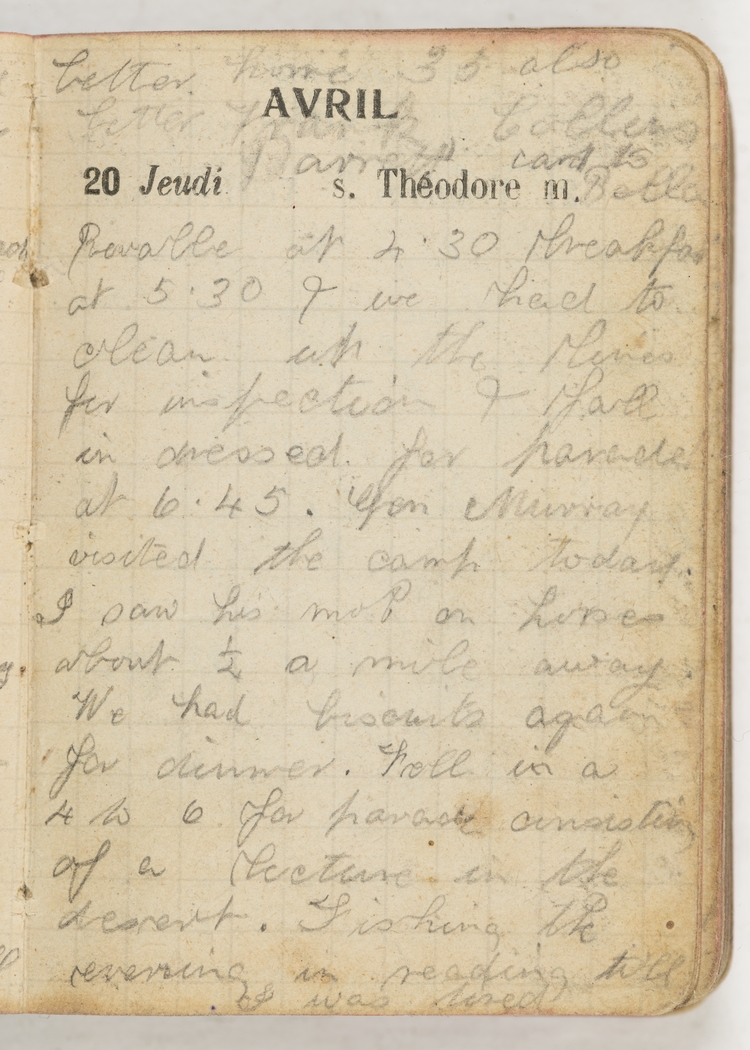 better. home 35 also
AVRIL
better Collins
card to
20 Jeudi s. Théodore m. Bella
Revalle at 4.30 Breakfas
at 5.30 & we had to
clean up the lines
for inspection & fall
in dressed for parade
at 6.45. Gen Murray
visited the camp today.
I saw his mob on horses
about ½ a mile away.
We had biscuits again
for dinner. Fell in a
4 to 6 for parade consisting
of a lecture in the
desert. Fishing the
evening in reading till
I was tired